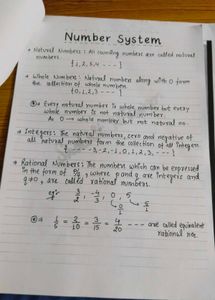 Number System
→ Natural Numbers : All counting numbers are called natural
numbers.
{1, 2, 3, 4 - - - }
→ Whole Numbers : Natural numbers along with 0 form
the collection of whole numbers.
{0, 1, 2, 3 - - - - }
Every natural number is whole number but every
whole number is not natural number.
As 0 → whole number but not natural no.
→ Integers : The natural numbers, zero and negative of
all natural numbers form the collection of all integers.
{ - - - - -3, -2, -1, 0, 1, 2, 3, - - - }
→ Rational Numbers : The numbers which can be expressed
in the form of p/q, where p and q are integers and
q≠0, are called rational numbers.
eg:- 3/2, -4/3, 0, 5
↳ 0/1 ↳ 5/1
⇒ 1/5 = 2/10 = 3/15 = 4/20 - - - - are called equivalent
rational no.